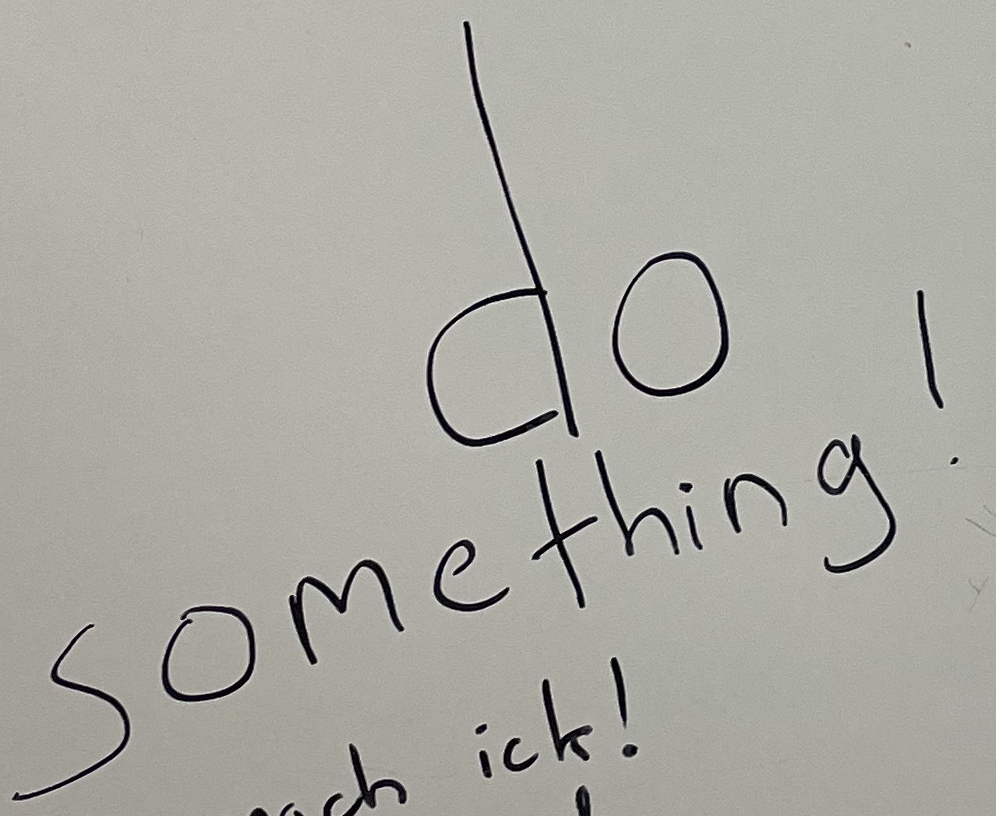 do
something!
ick!